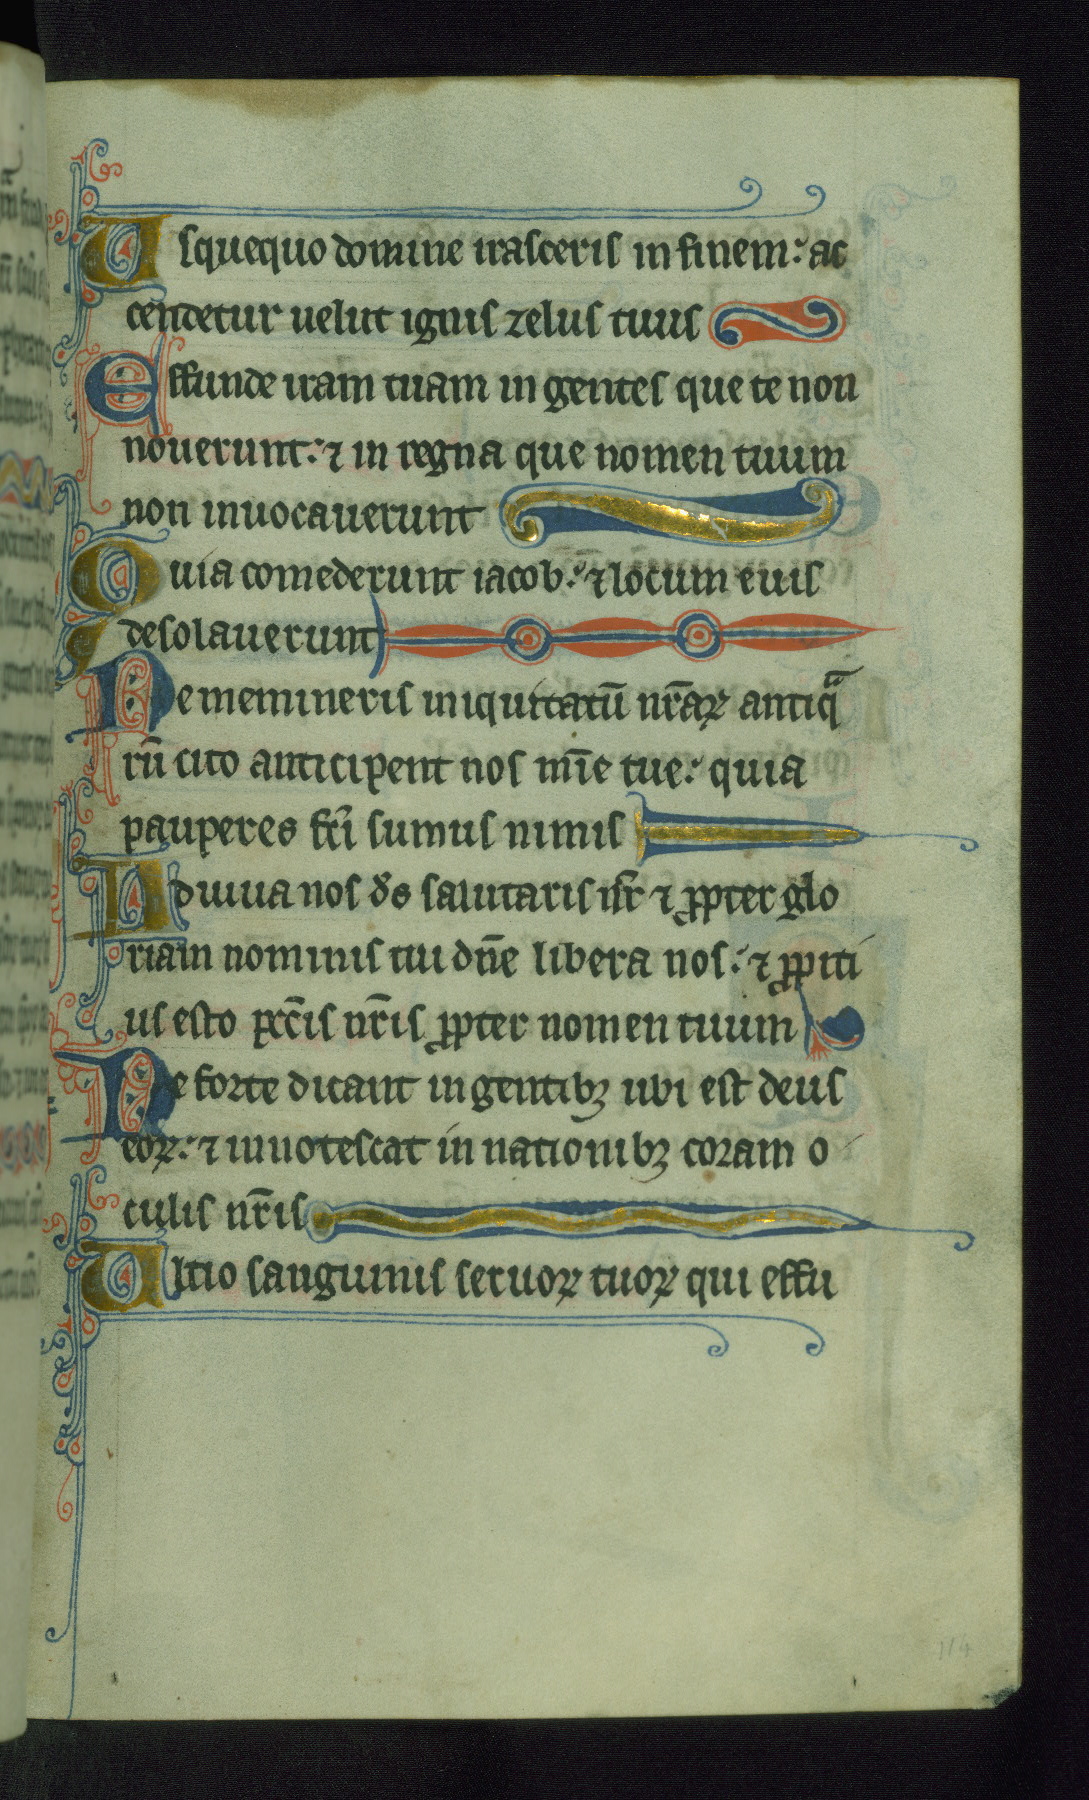 Usquequo domine irasceris in finem: ac
cendetur uelut ignis zelus tuus
Effunde iram tuam in gentes que te non
nouerunt: ⁊ in regna que nomen tuum
non inuocauerunt
Quia comederunt iacob: ⁊ locum euis
desolauerunt
Ne memineris iniquitatū nr̄aꝝ antiqᷓ
rū cito anticipent nos mīe tue: quia
pauperes fc̄i sumus nimis
Adiuua nos ds̄ salutaris nr̄ ⁊ ꝓpter glo
riam nominis tui dn̄e libera nos: ⁊ ꝓpiti
us esto pcc̄is nr̄is ꝓpter nomen tuum
Ne forte dicant in gentibꝫ ubi est deus
eoꝝ: ⁊ innotescat in nationibꝫ coram o
culis nr̄is
Ultio sanguinis seruoꝝ tuoꝝ qui effu
114